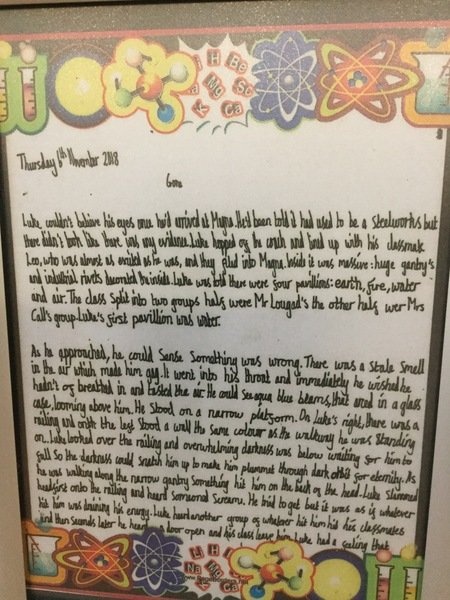 H Be
Mg Sc
K Ca
Thursday 6th November 2018
Gone
Luke couldn't believe his eyes once he'd arrived at Magna. He'd been told it had used to be a Steelworks but
there didn't look like there was any evidence. Luke hopped of he coach and lined up with his classmate
Leo, who was almost as exited as he was, and they filed into Magna. Inside it was massive: huge gantry's
and industrial rivets decorated the inside. Luke was told there were four pavillions: earth, fire, water
and air. The class Split into two groups half were Mr Louged's the other half wer Mrs
Call's group. Luke's first pavillion was water.
As he approached, he could Sense Something was wrong. There was a Stale Smell
in the air which made him gag. It went into his throat and immediately he wished he
hadn't of breathed in and tasted the air. He could see aqua blue beams, that in a glass
case, looming above him. He Stood on a narrow platform. On Luke's right, there was a
railing and on the left stood a wall the same colour as the walkway he was Standing
on. Luke looked over the railing and overwhelming darkness was below waiting for him to
fall So the darkness could snatch him up to make him plummet through dark for eternity. As
he was walking along the narrow gantry Something hit him on the back of the head. Luke Slammed
headfirst onto the railing and heard Someone Scream. He tried to get but it was as if whatever
hit him was draining his energy. Luke heard another group of whatever hit him hit his classmates
and then Seconds later he heard a door open and his class leave him. Luke had a feeling that
Li H
Na Mg
K Ca